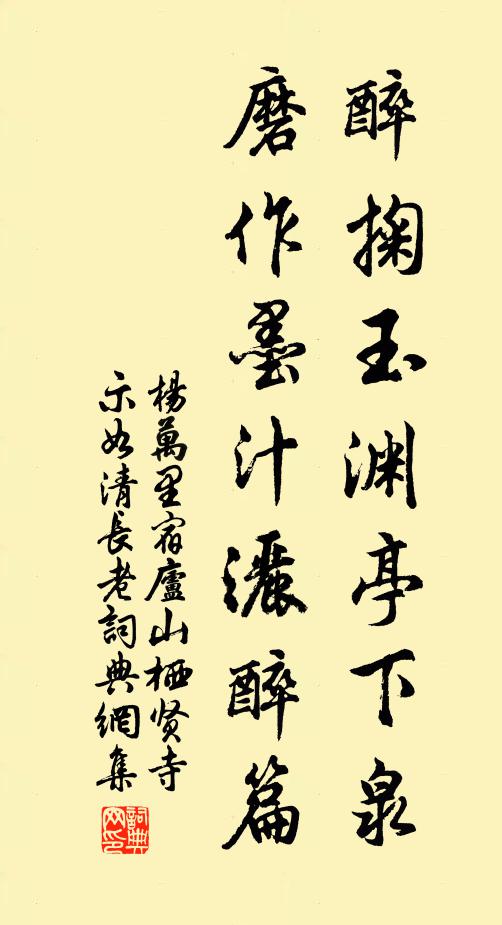 醉掬玉渊亭下泉
磨作墨汁灑醉篇
楊萬里宿廬山栖贤寺
示如清長老詞典網集
詞典網印